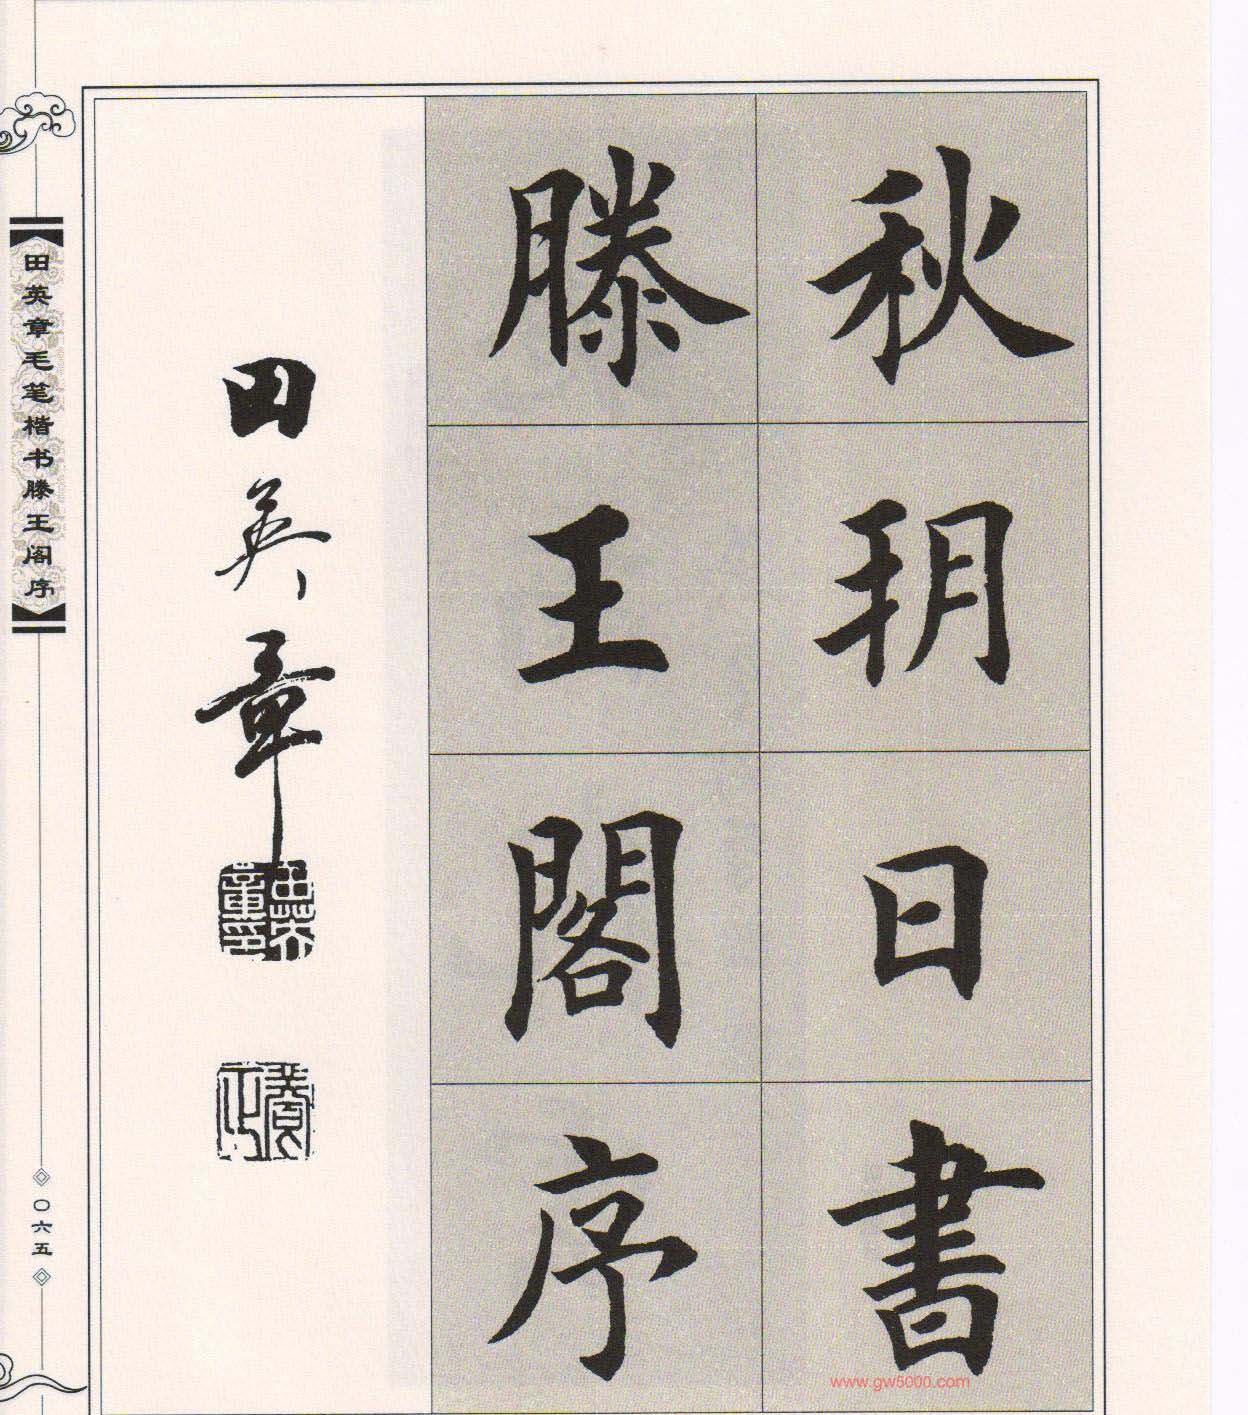 秋玥日書
滕王閣序
田英章
田英章毛笔楷书滕王阁序
〇六五
www.gw5000.com